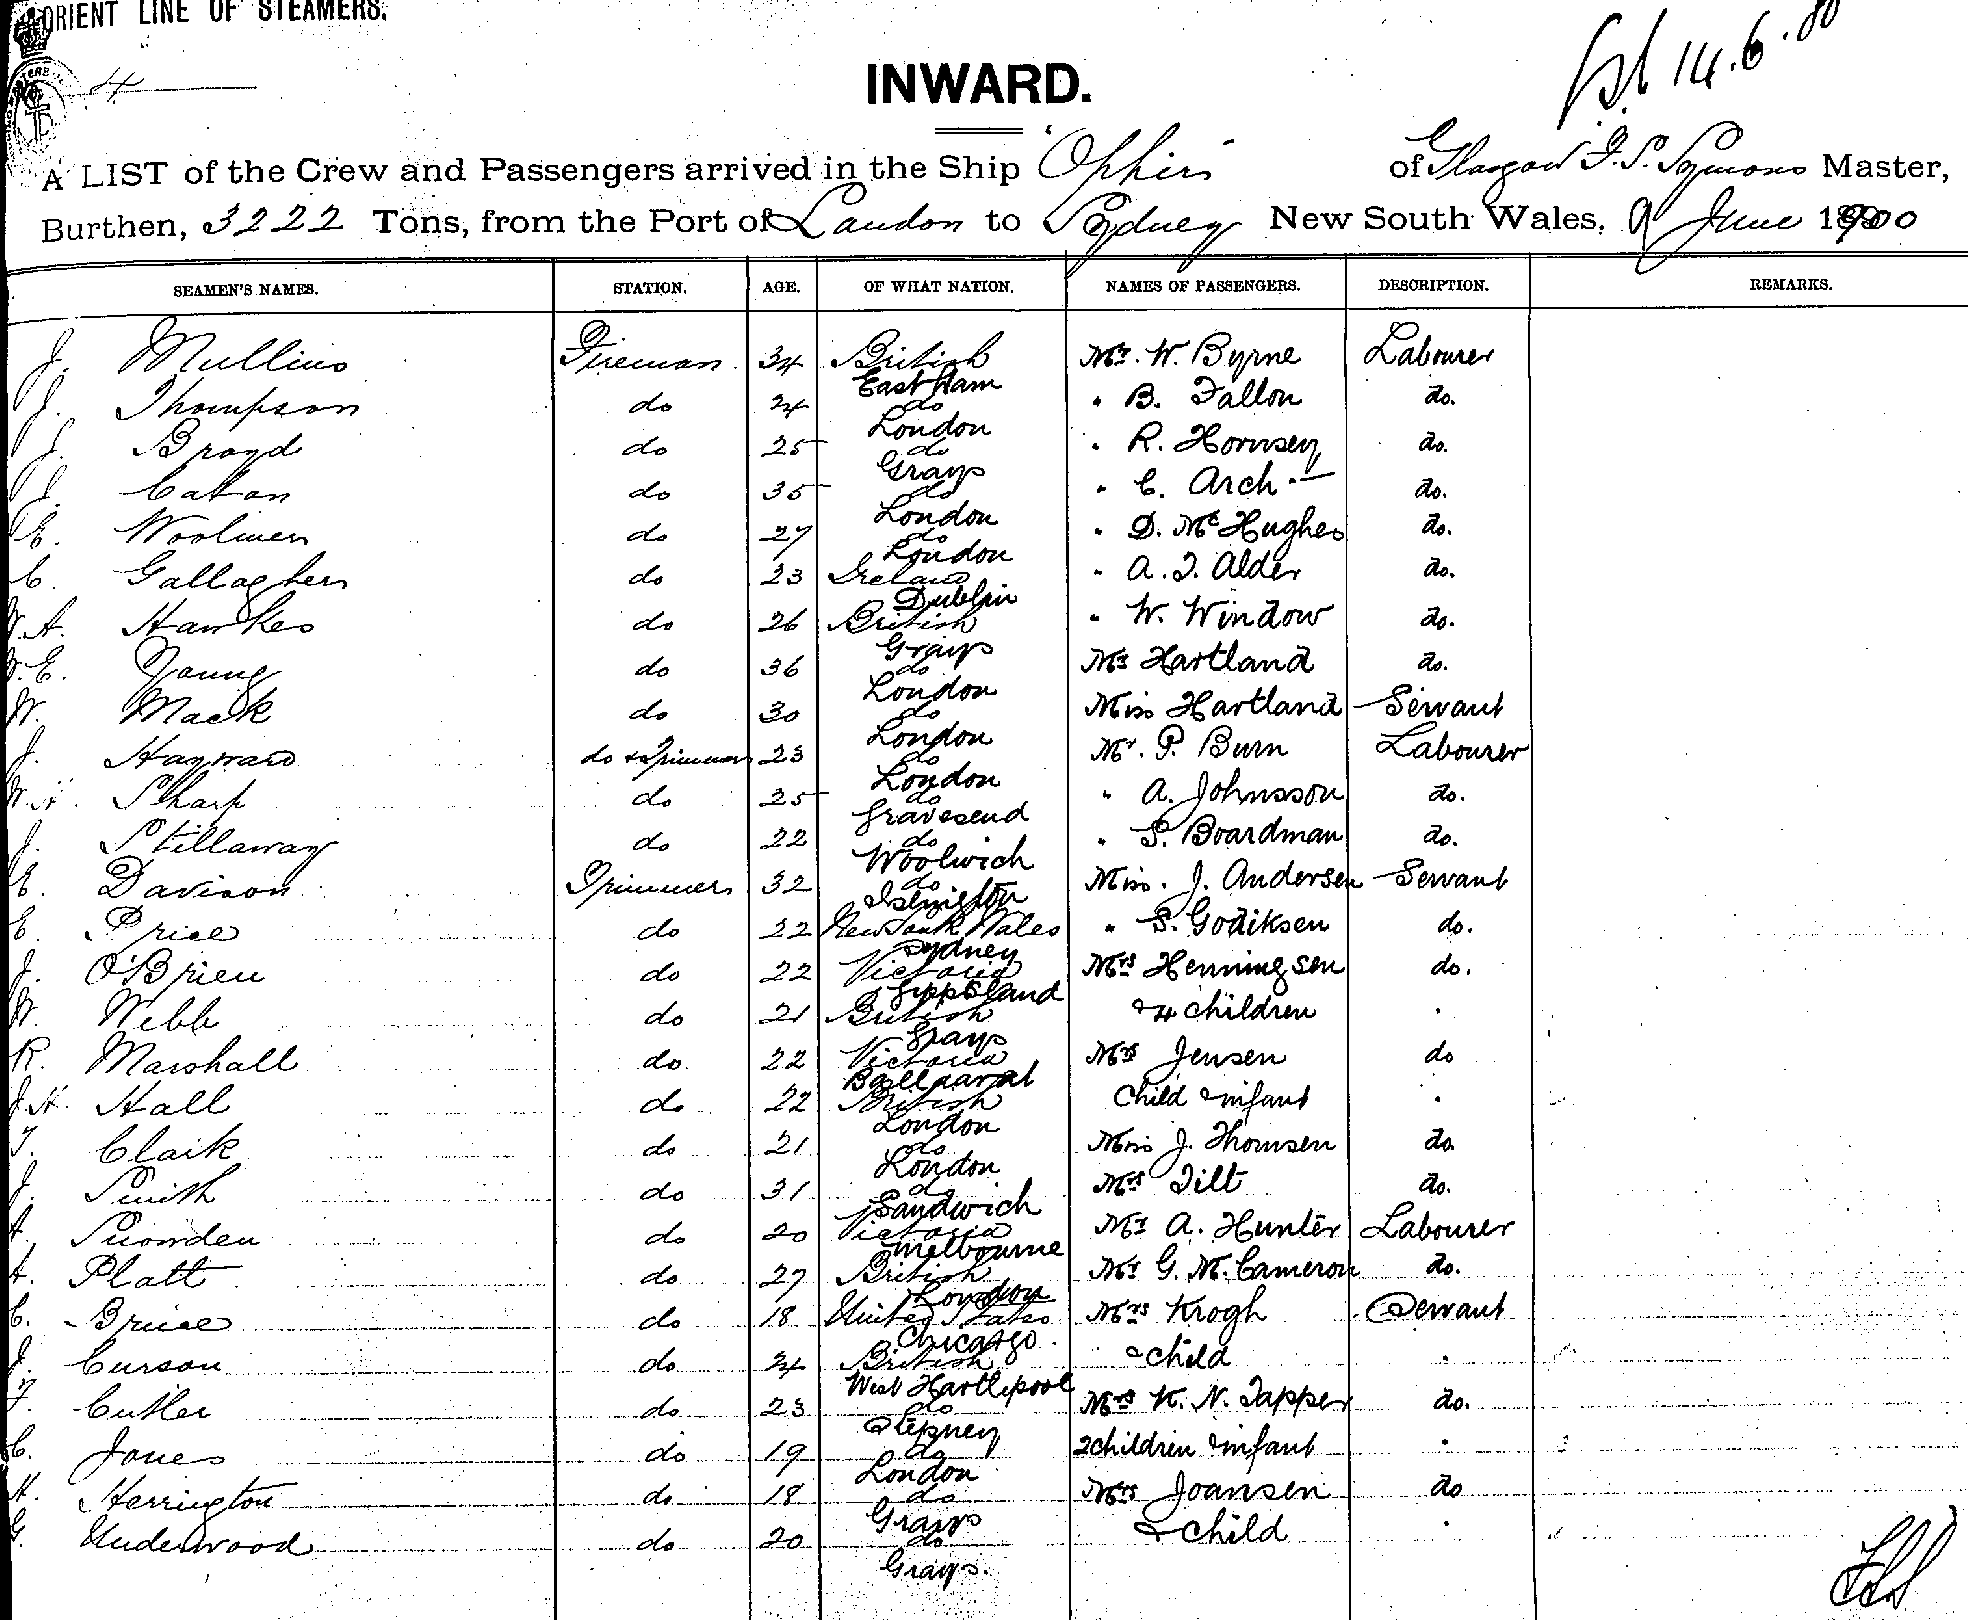 ORIENT LINE OF STEAMERS.
4
14.6.00
INWARD.
A LIST of the Crew and Passengers arrived in the Ship Ophir of Glasgow J. S. Symons Master,
Burthen, 3222 Tons, from the Port of London to Sydney New South Wales, 9 June 1900
SEAMEN'S NAMES. STATION. AGE. OF WHAT NATION. NAMES OF PASSENGERS. DESCRIPTION. REMARKS.
J. Mullins Fireman 34 British Mr. W. Byrne Labourer
East Ham
J. Thompson do 24 do " B. Fallon do.
London
J. Broyd do 25 do " R. Hornsey do.
Grays
J. Caton do 35 do " C. Arch do.
London
E. Woolmer do 27 do " D. McHughes do.
London
C. Gallagher do 23 Ireland " A. J. Alder do.
Dublin
W. A. Hawkes do 26 British " W. Window do.
Grays
W. E. Young do 36 do Mr Hartland do.
London
W. Mack do 30 do Miss Hartland Servant
London
J. Hayward do & Trimmer 23 do Mr. P. Burn Labourer
London
W. H. Sharp do 25 do " A. Johnsson do.
Gravesend
J. Stillaway do 22 do " S. Boardman do.
Woolwich
E. Davison Trimmer 32 do Miss. J. Andersen Servant
Islington
E. Price do 22 New South Wales " S. Godiksen do.
Sydney
J. O'Brien do 22 Victoria Mrs Henningsen do.
Gippsland
W. Webb do 21 British & 4 children "
Grays
R. Marshall do 22 Victoria Mrs Jensen do
Ballaarat
J. H. Hall do 22 British Child & infant "
London
T. Clark do 21 do Miss J. Thomsen do.
London
J. Smith do 31 do Mrs Tilt do.
Sandwich
A. Snowden do 20 Victoria Mr A. Hunter Labourer
Melbourne
A. Platt do 27 British Mr G. M. Cameron do.
London
C. Bruce do 18 United States Mrs Krogh Servant
Chicago
J. Curson do 24 British & child "
West Hartlepool
F. Cutler do 23 do Mrs K. N. Tapper do.
Stepney
C. Jones do 19 do 2 children & infant "
London
H. Herrington do 18 do Mrs Joansen do
Grays
G. Underwood do 20 do & child "
Grays.